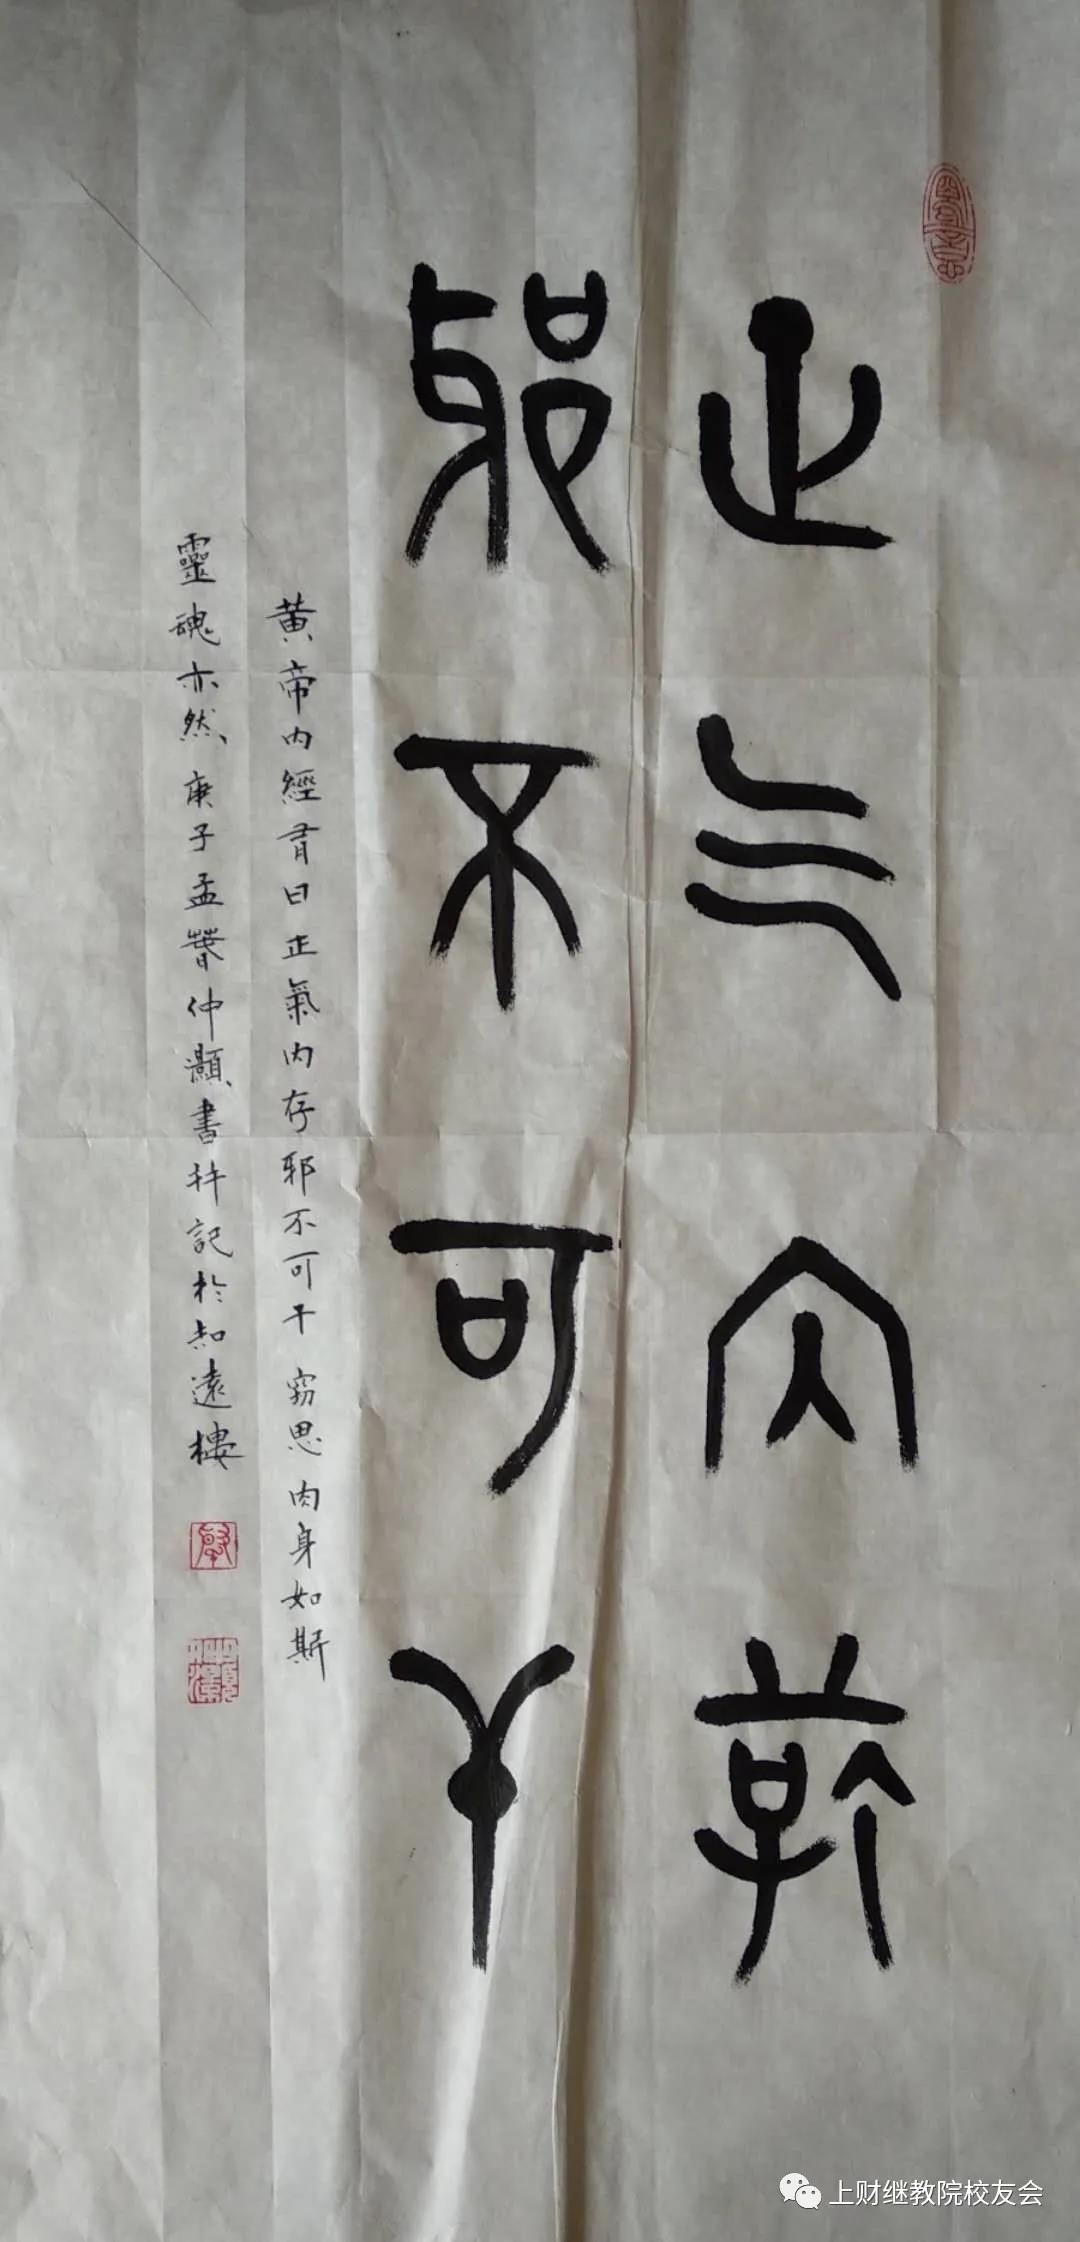 正气内存
邪不可干
黄帝内經有曰正氣内存邪不可干竊思肉身如斯
靈魂亦然庚子孟春仲灝書并記於知遠樓
上财继教院校友会